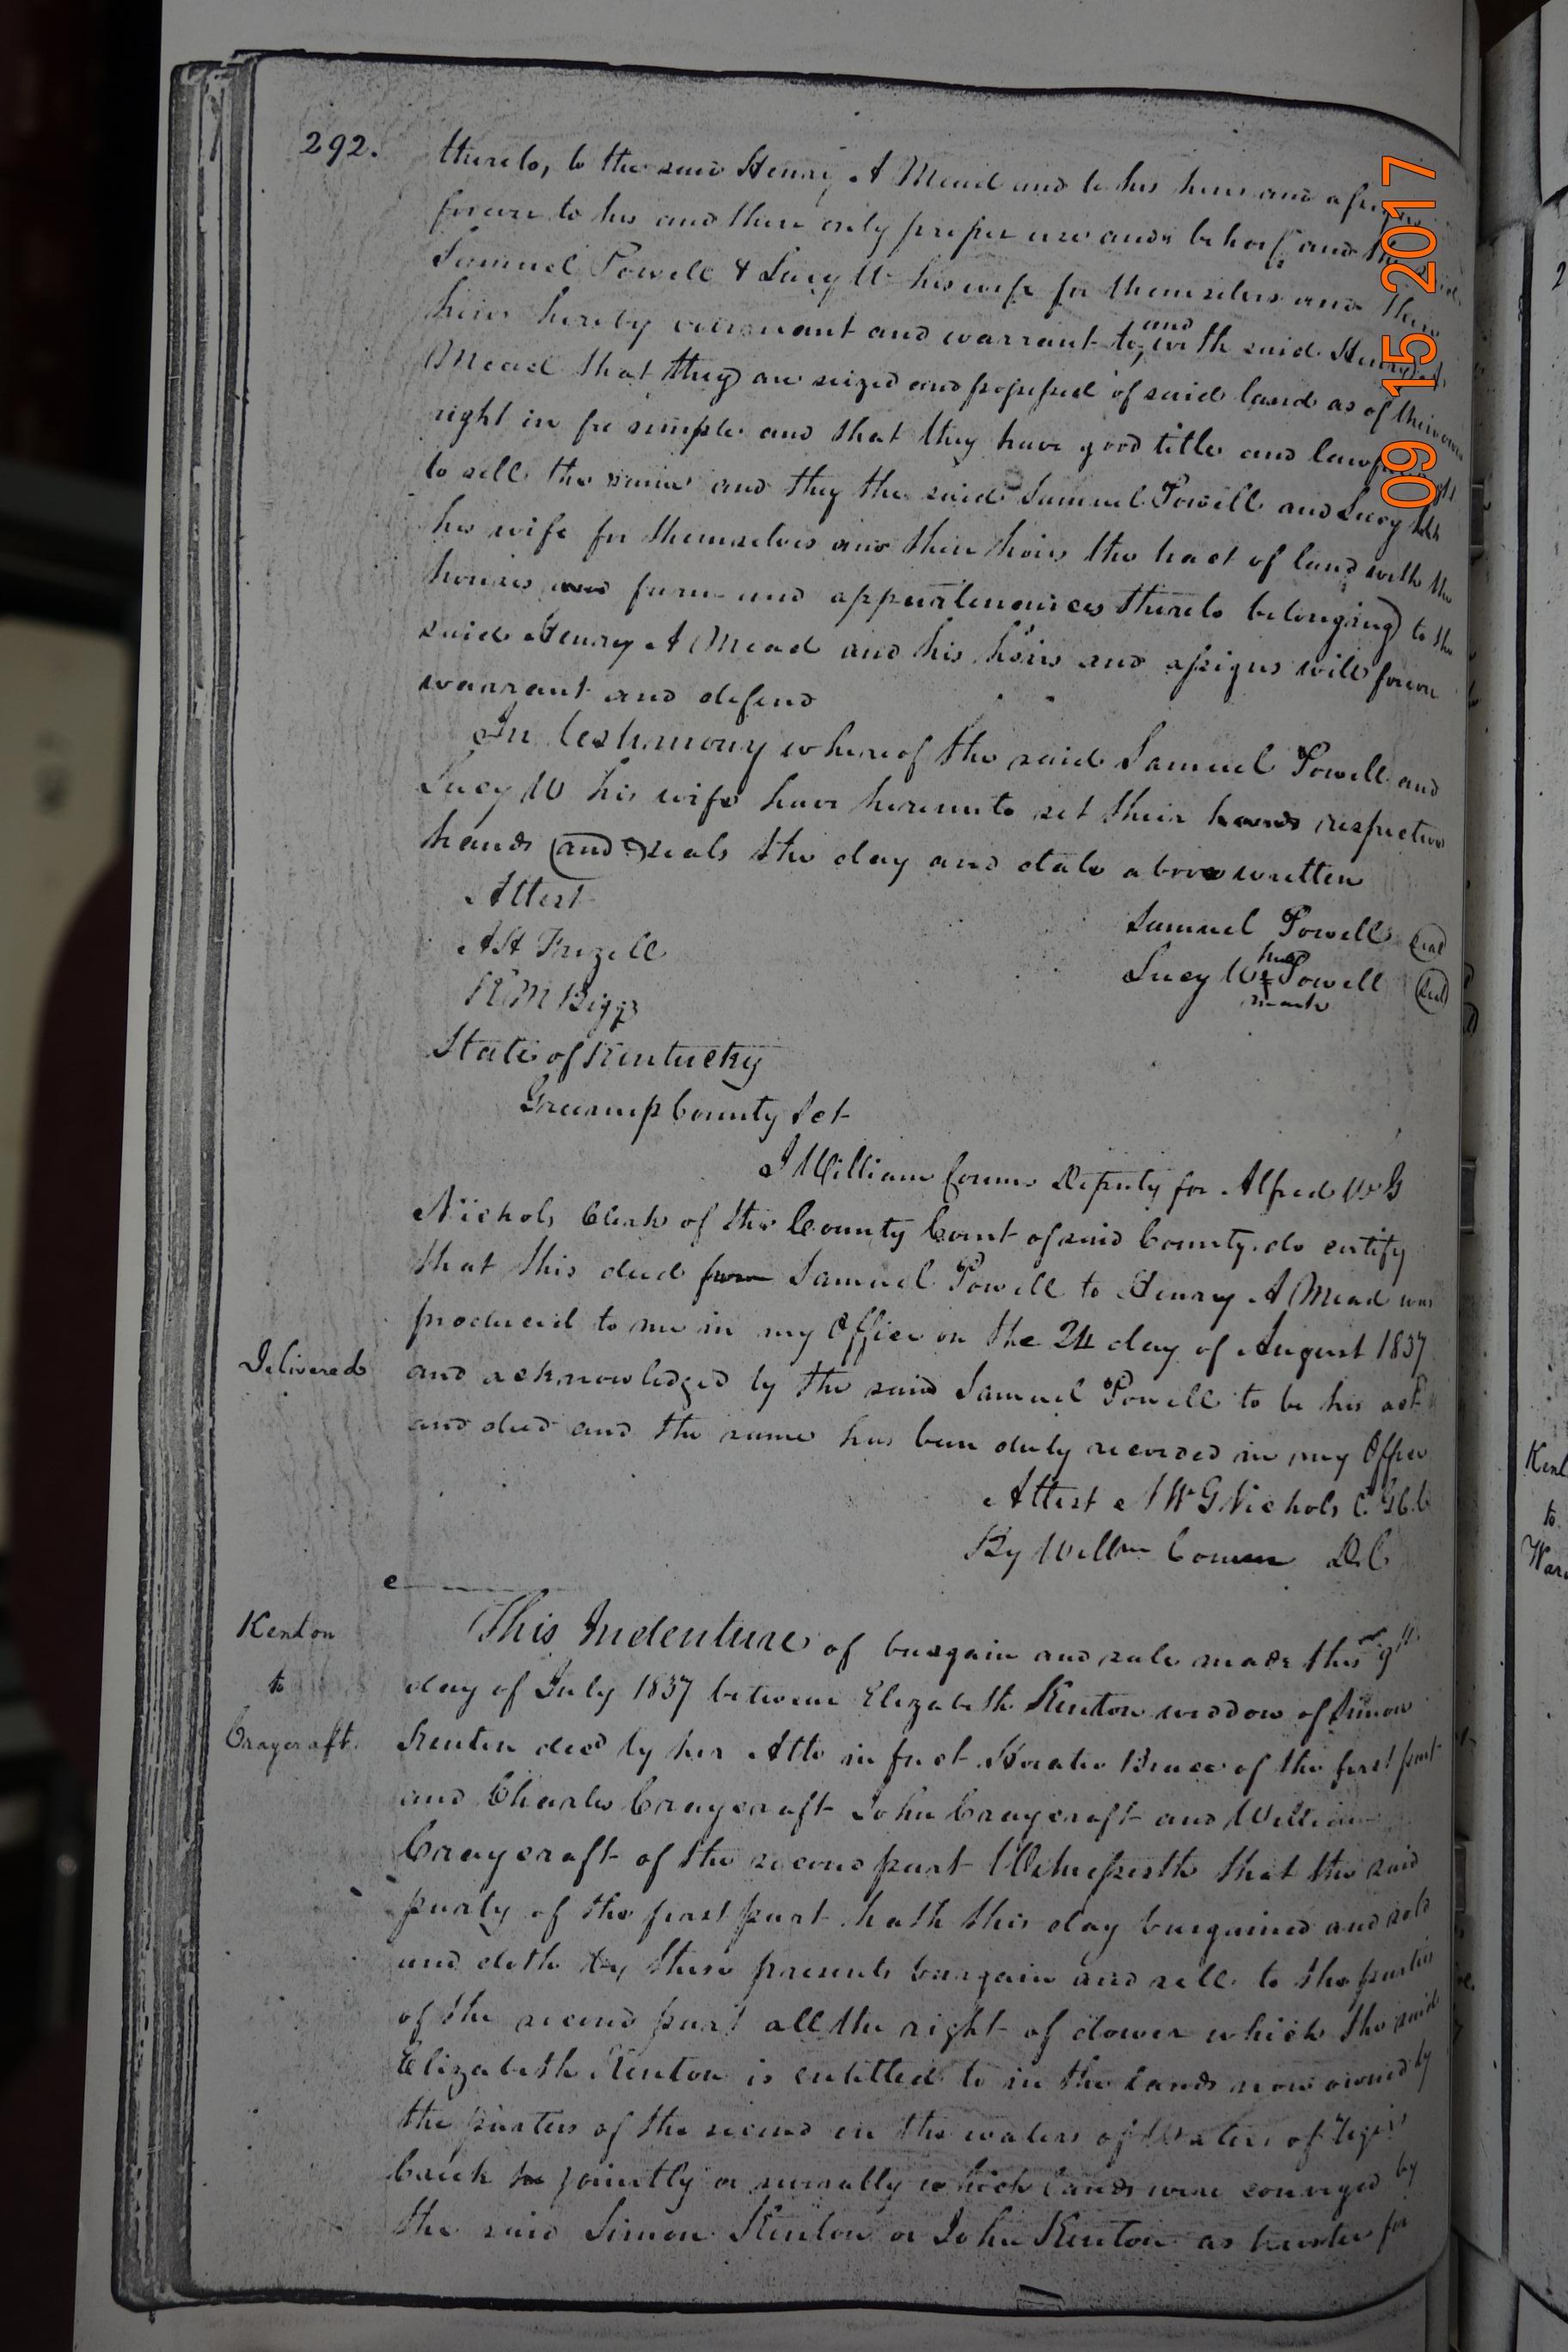 292.
thereto, to the said Henry A Mead and to his heirs and assigns
forever to his and their only proper use and behoof and the said
Samuel Powell & Lucy W his wife for themselves and their
heirs hereby covenant and warrant to, and with said Henry A
Mead that they are seized and possessed of said land as of their own
right in fee simple and that they have good title and lawful right
to sell the same and they the said Samuel Powell and Lucy W
his wife for themselves and their heirs the tract of land with the
houses and farm and appurtenances thereto belonging to the
said Henry A Mead and his heirs and assigns will forever
warrant and defend
In testimony whereof the said Samuel Powell and
Lucy W his wife have hereunto set their hands respective
hands and seals the day and date above written
Attest
Samuel Powell seal
A H Frizell
Lucy W her Powell seal
mark
R M Biggs
State of Kentucky
Greenup County Sct
I William Corum Deputy for Alfred W G
Nichols Clerk of the County Court of said County do certify
that this deed from Samuel Powell to Henry A Mead was
produced to me in my Office on the 24 day of August 1837
Delivered
and acknowledged by the said Samuel Powell to be his act
and deed and the same has been duly recorded in my Office
Attest A W G Nichols C.G.C.C
By Willm Corum D.C
Kenton
to
Craycraft.
This Indenture of bargain and sale made this 9th
day of July 1837 between Elizabeth Kenton widdow of Simon
Kenton decd by her Atto in fact Horatio Bruce of the first part
and Charles Craycraft John Craycraft and William
Craycraft of the second part Witnesseth that the said
party of the first part hath this day bargained and sold
and doth by these presents bargain and sell to the parties
of the second part all the right of dower which the said
Elizabeth Kenton is entitled to in the lands now owned by
the parties of the second on the waters of Waters of Tygers
Creek jointly or severally which lands were conveyed by
the said Simon Kenton or John Kenton as trustee for
09 15 2017
Kent
to